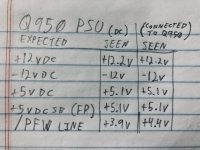 Q950 PSU (DC) (CONNECTED TO Q950)
EXPECTED SEEN SEEN
+12VDC +12.2V +12.2V
-12VDC -12V -12V
+5VDC +5.1V +5.1V
+5VDC SB (FP) +5.1V +5.1V
/PFW LINE +3.9V +4.4V